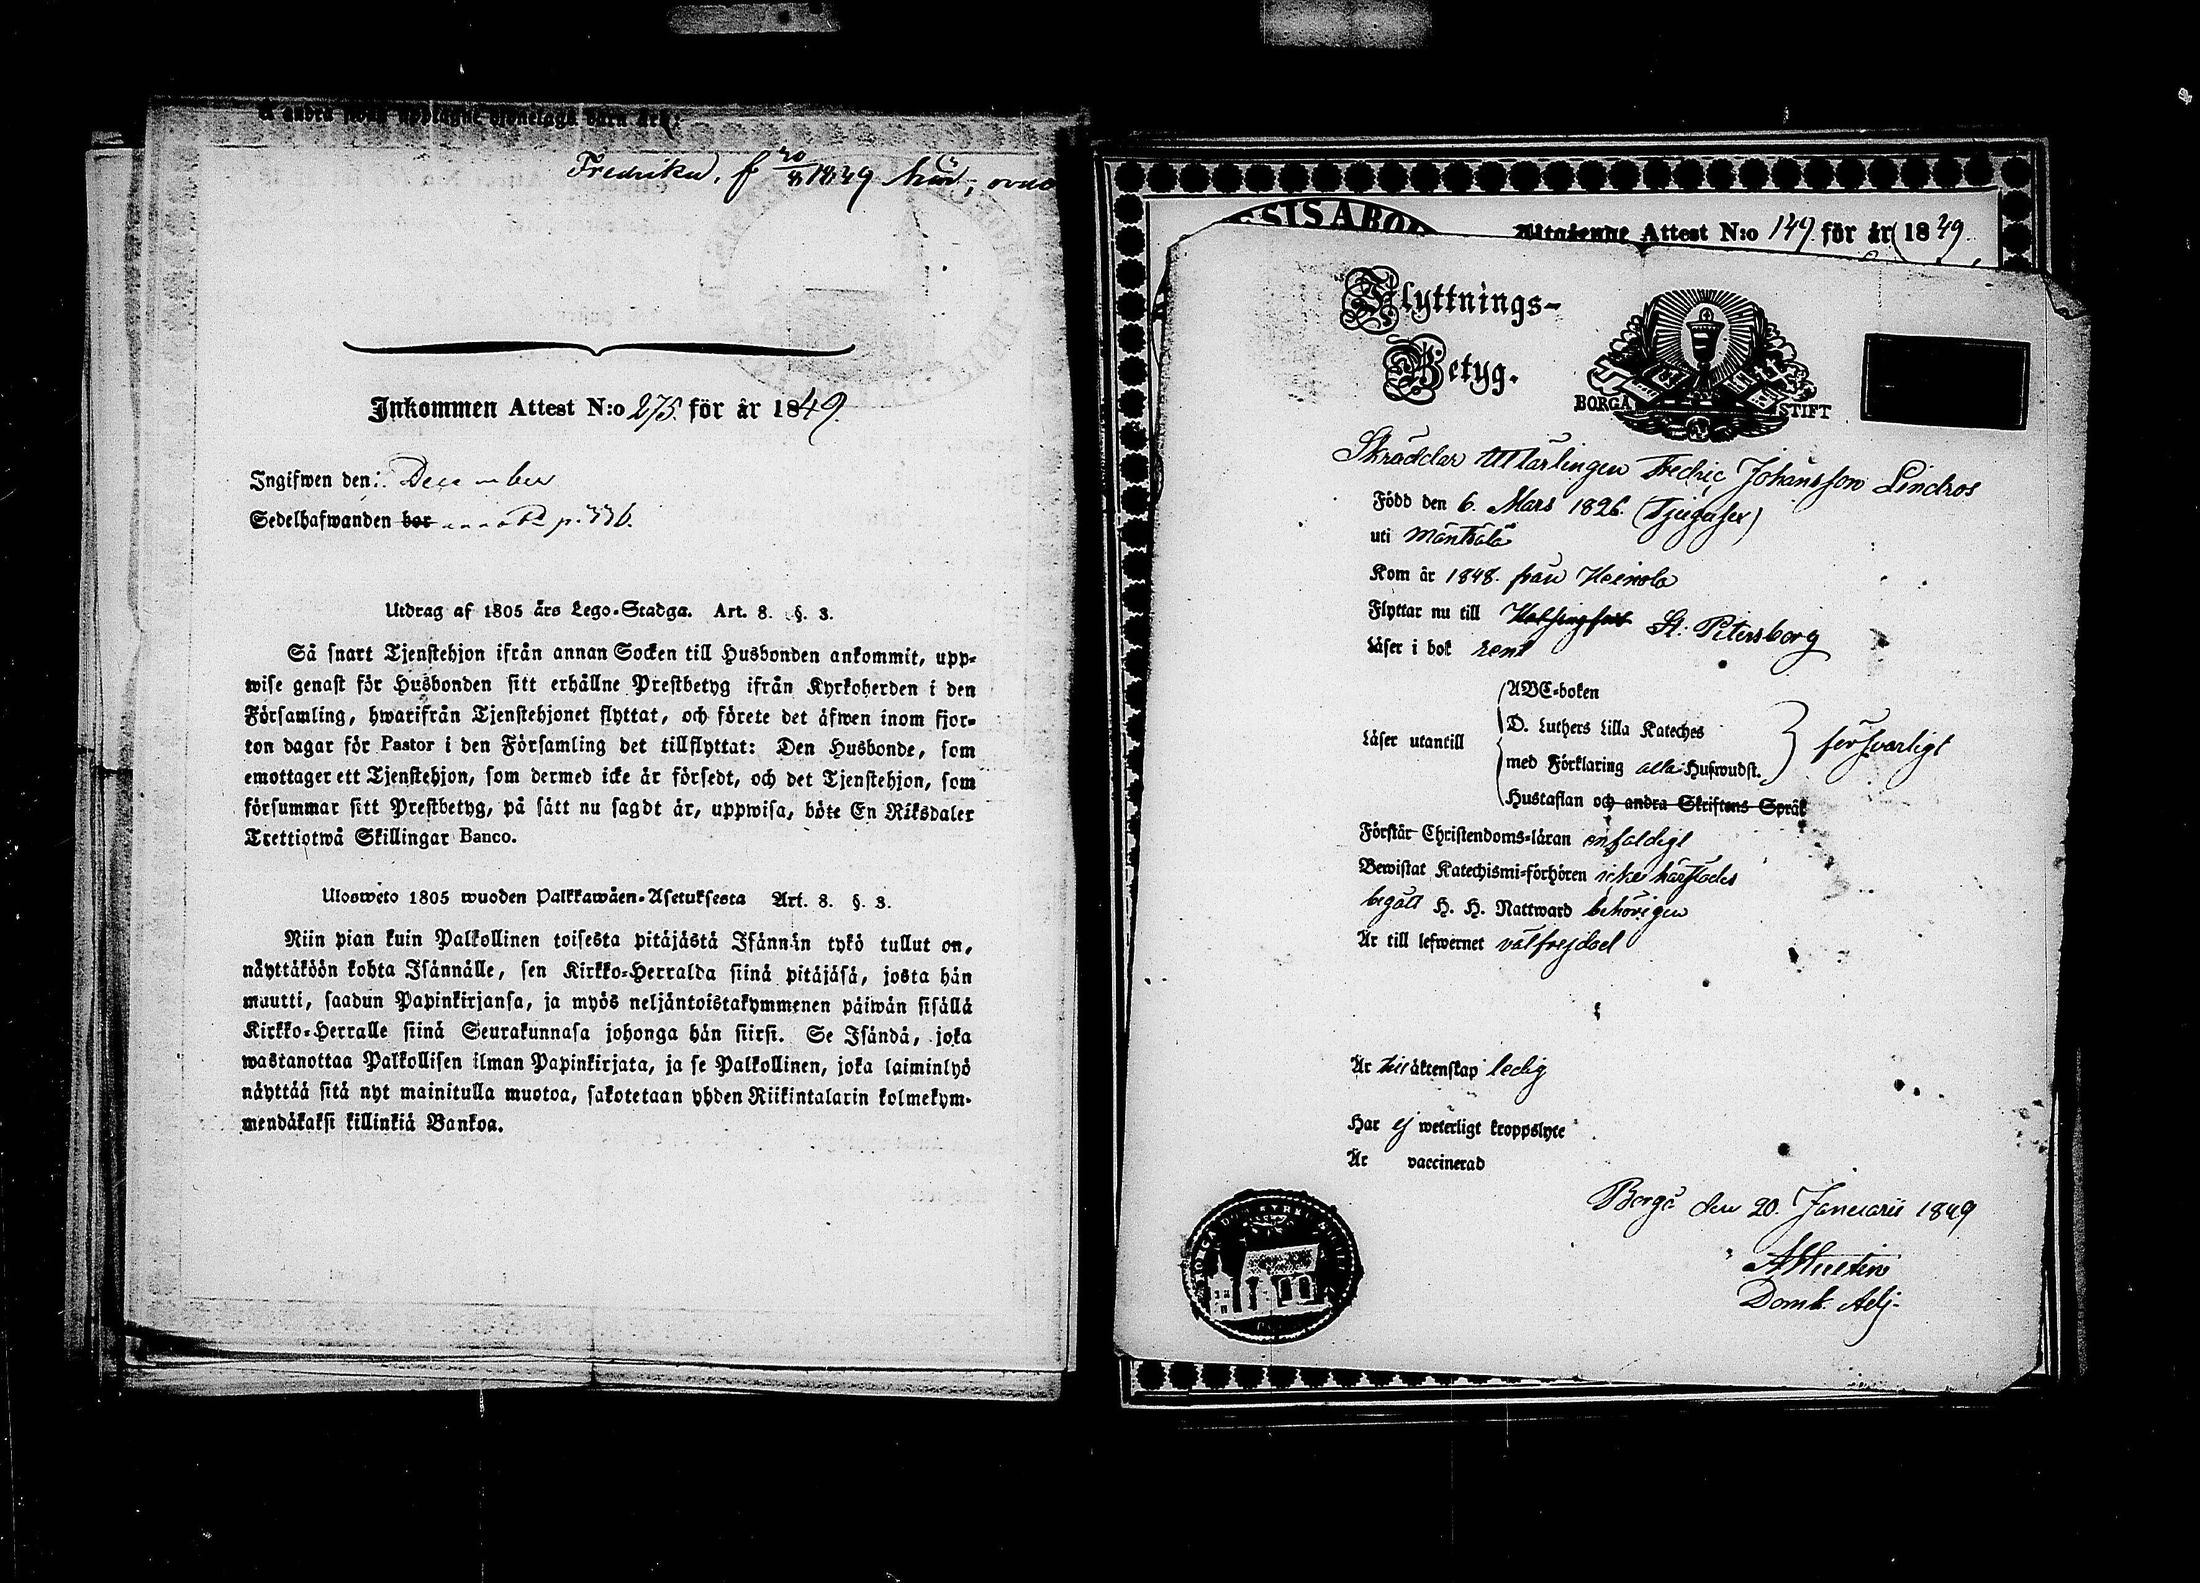 Fredrika, f 20/8 1849 här,
Inkommen Attest N:o 275. för år 1849.
Ingifwen den: December
Sedelhafwanden bor p. 336.
Utdrag af 1805 års Lego-Stadga. Art. 8. §. 3.
Så snart Tjenstehjon ifrån annan Socken till Husbonden ankommit, upp-
wise genast för Husbonden sitt erhållne Prestbetyg ifrån Kyrkoherden i den
Församling, hwarifrån Tjenstehjonet flyttat, och förete det äfwen inom fjor-
ton dagar för Pastor i den Församling det tillflyttat: Den Husbonde, som
emottager ett Tjenstehjon, som dermed icke är försedt, och det Tjenstehjon, som
försummar sitt Prestbetyg, på sätt nu sagdt är, uppwisa, böte En Riksdaler
Trettiotwå Skillingar Banco.
Ulosweto 1805 wuoden Palkkawäen-Asetuksesta Art. 8. §. 3.
Niin pian kuin Palkollinen toisesta pitäjästä Isännän tykö tullut on,
näyttäköön kohta Isännälle, sen Kirkko-Herralda siinä pitäjäsä, josta hän
muutti, saadun Papinkirjansa, ja myös neljäntoistakymmenen päiwän sisällä
Kirkko-Herralle siinä Seurakunnasa johonga hän siirsi. Se Isändä, joka
wastanottaa Palkollisen ilman Papinkirjata, ja se Palkollinen, joka laiminlyö
näyttää sitä nyt mainitulla muotoa, sakotetaan yhden Riikintalarin kolmekym-
mendäkaksi killinkiä Bankoa.
Utgående Attest N:o 149 för år 1849.
Flyttnings-
Betyg.
BORGÅ STIFT
Skräddar Mlärlingen Fredric Johansson Lindros
Född den 6. Mars 1826. (Tjugusex)
uti Mäntsälä
Kom år 1848. från Heinola
Flyttar nu till Helsingfors St. Petersborg
Läser i bok rent
Läser utantill
ABC-boken
D. Luthers Lilla Kateches
med Förklaring alla Huswudst.
Hustaflan och andra Skriftens Språk
försvarligt
Förstår Christendoms-läran enfaldigt
Bewistat Katechismi-förhören icke härstädes
begått H. H. Nattward behörigen
Är till lefwernet välfrejdad
Är till äktenskap ledig
Har ej weterligt kroppslyte
Är vaccinerad
Borgå den 20. Januarii 1849
Domk. Adj.